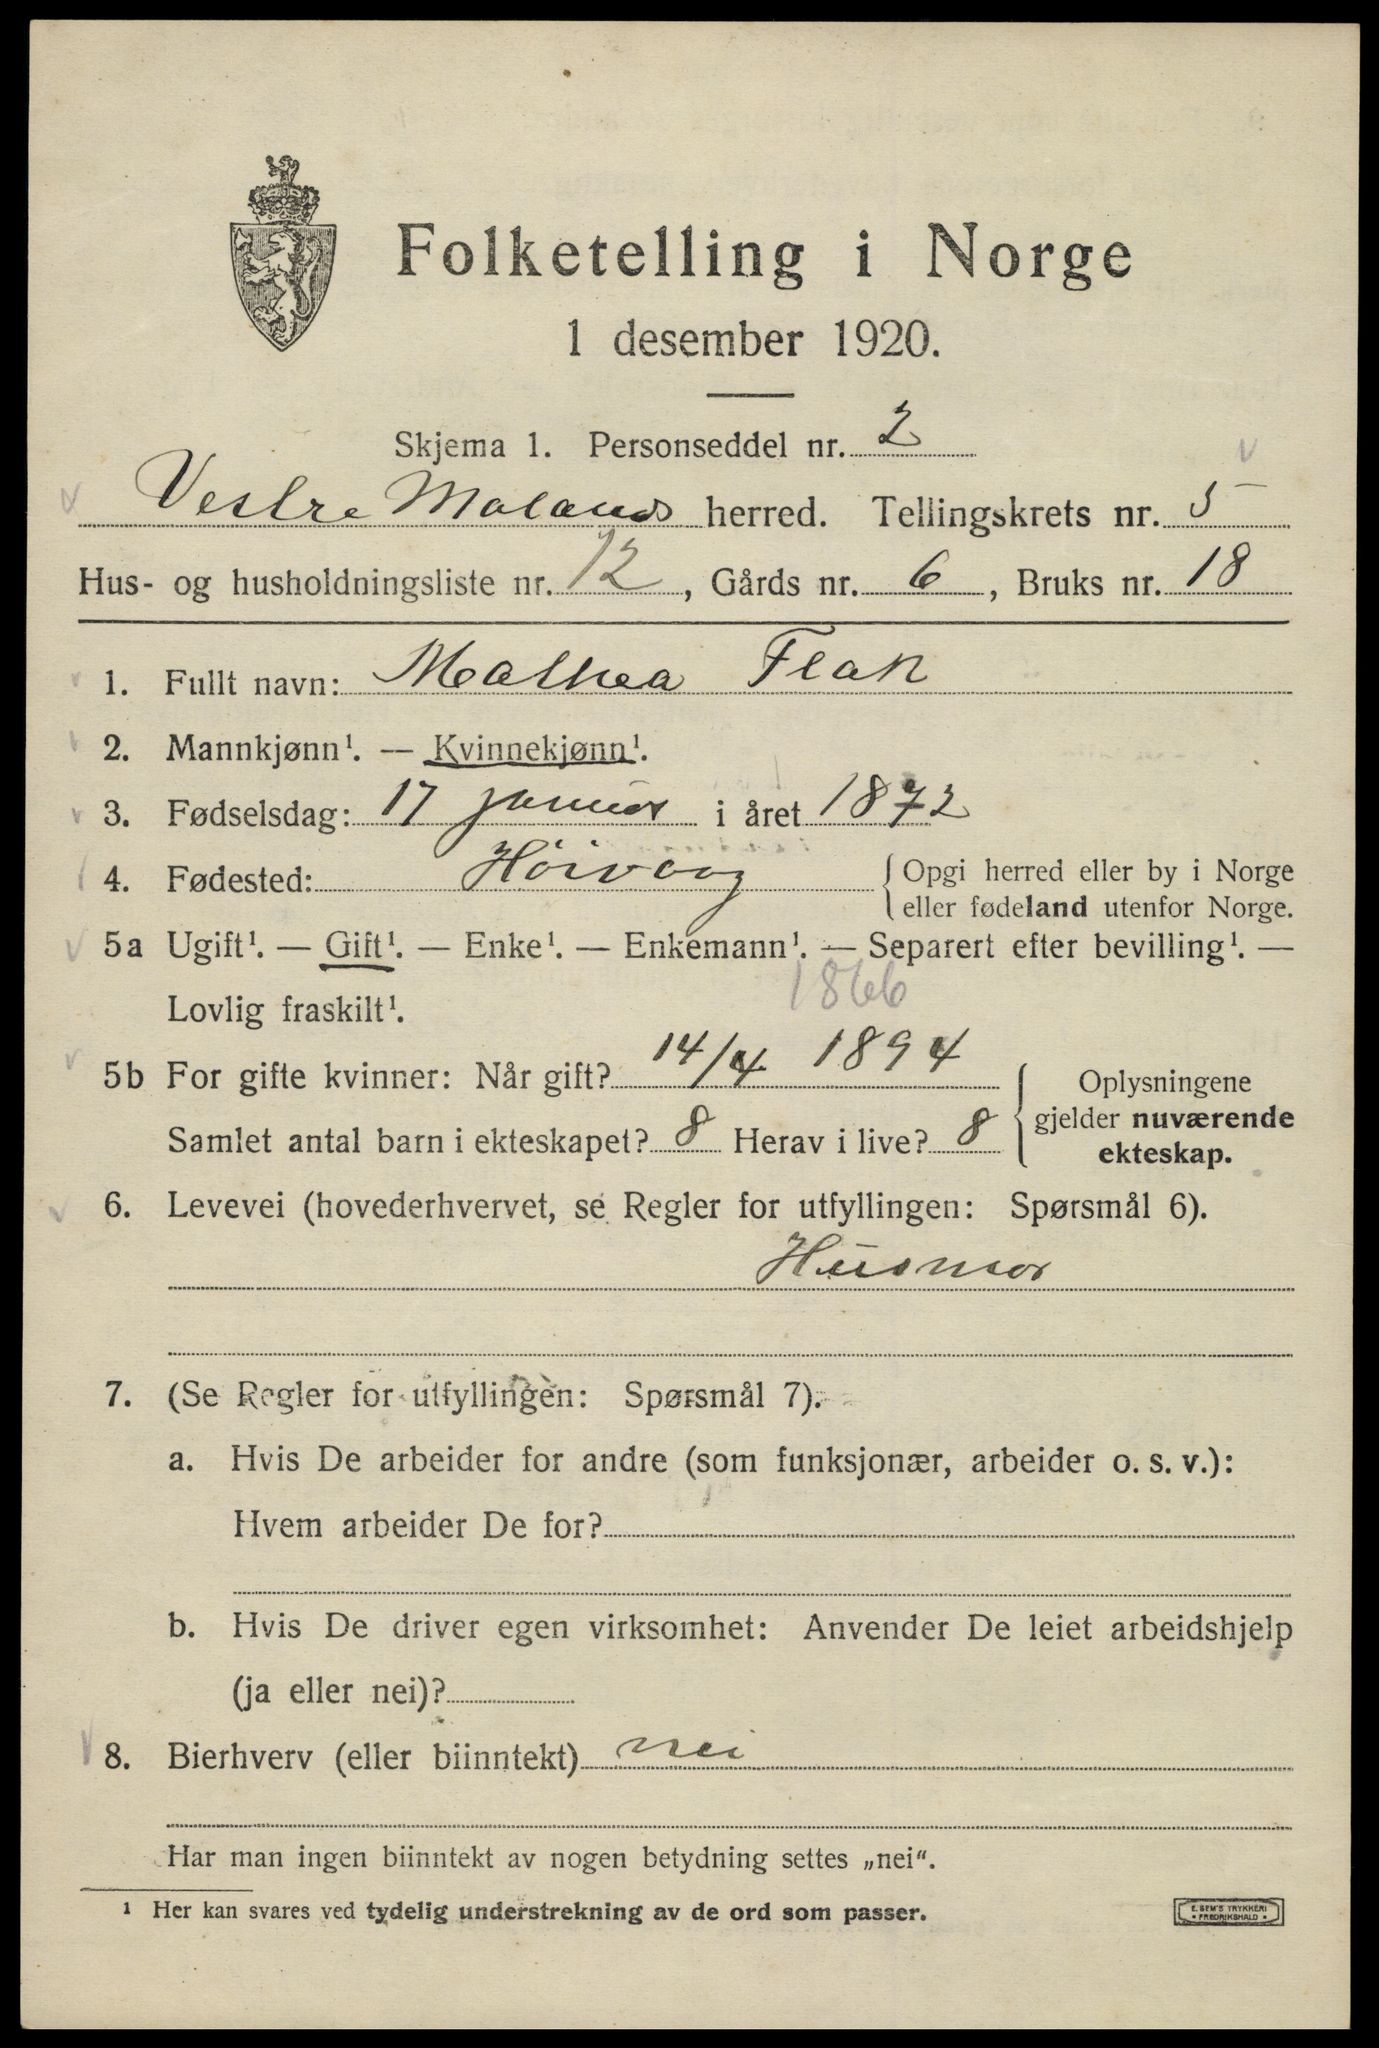 Folketelling i Norge
1 desember 1920.
Skjema 1. Personseddel nr. 2
Vestre Molands herred. Tellingskrets nr. 5
Hus- og husholdningsliste nr. 12, Gårds nr. 6, Bruks nr. 18
1. Fullt navn: Mathea Flak
2. Mannkjønn¹. — Kvinnekjønn¹.
3. Fødselsdag: 17 januar i året 1872
4. Fødested: Höivaag { Opgi herred eller by i Norge
eller fødeland utenfor Norge.
5a Ugift¹. — Gift¹. — Enke¹. — Enkemann¹. — Separert efter bevilling¹. —
1866
Lovlig fraskilt¹.
5b For gifte kvinner: Når gift? 14/4 1894
Samlet antal barn i ekteskapet? 8 Herav i live? 8
Oplysningene
gjelder nuværende
ekteskap.
6. Levevei (hovederhvervet, se Regler for utfyllingen: Spørsmål 6).
Husmor
7. (Se Regler for utfyllingen: Spørsmål 7).
a. Hvis De arbeider for andre (som funksjonær, arbeider o. s. v.):
Hvem arbeider De for?
b. Hvis De driver egen virksomhet: Anvender De leiet arbeidshjelp
(ja eller nei)?
8. Bierhverv (eller biinntekt) nei
Har man ingen biinntekt av nogen betydning settes „nei“.
¹ Her kan svares ved tydelig understrekning av de ord som passer.
E. SEM'S TRYKKERI
• FREDRIKSHALD •